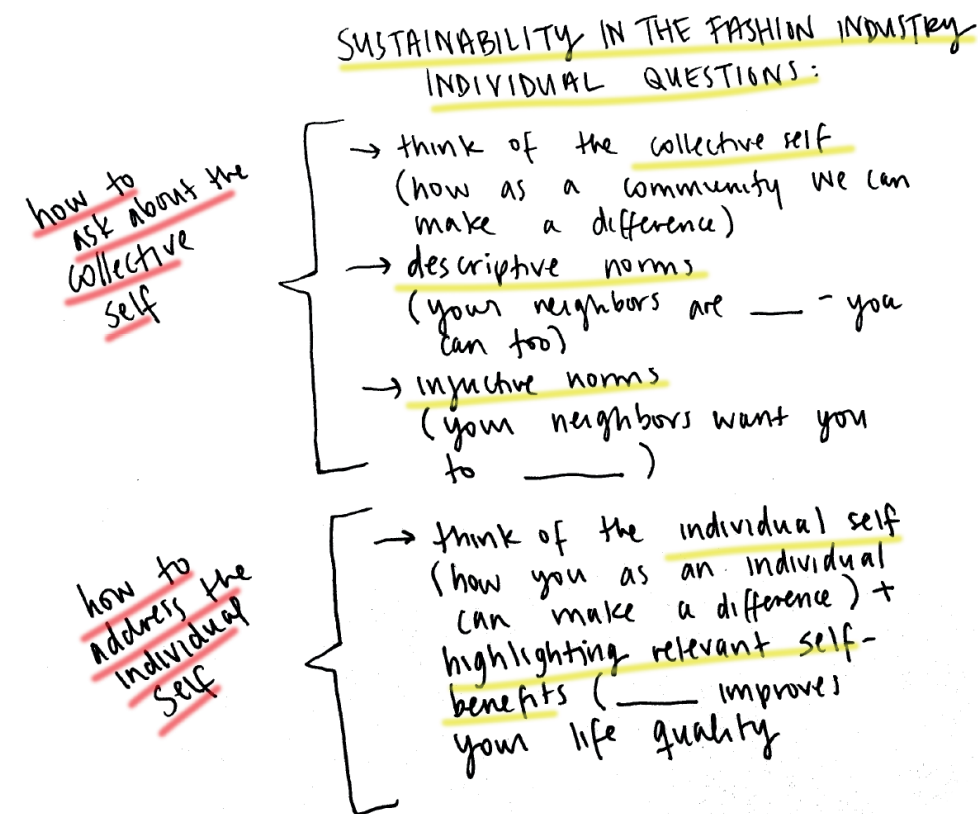 SUSTAINABILITY IN THE FASHION INDUSTRY
INDIVIDUAL QUESTIONS:
how to
ask about the
collective
self
→ think of the collective self
(how as a community we can
make a difference)
→ descriptive norms
(your neighbors are ___ - you
can too)
→ injuctive norms
(your neighbors want you
to ______ )
how to
address the
individual
self
→ think of the individual self
(how you as an individual
can make a difference) +
highlighting relevant self-
benefits (____ improves
your life quality